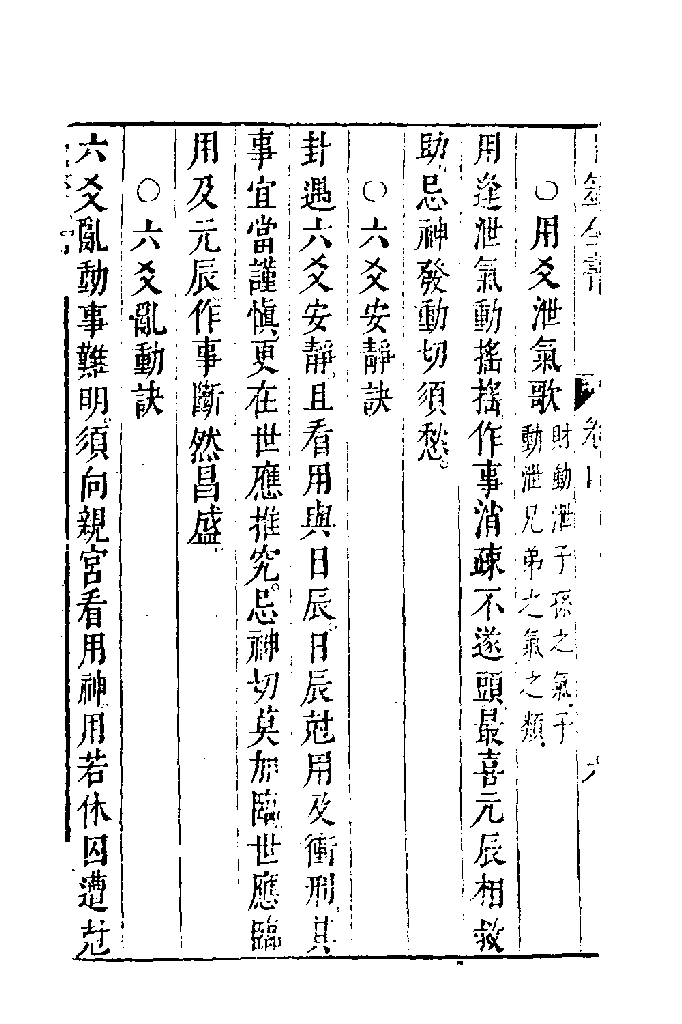 ○用爻泄氣歌 財動泄子孫之氣子
動泄兄弟之氣之類
用逢泄氣動搖搖作事消疎不遂頭最喜元辰相救
助忌神發動切須愁
○六爻安靜訣
卦遇六爻安靜且看用與日辰日辰尅用及衝刑其
事宜當謹慎更在世應推究忌神切莫加臨世應臨
用及元辰作事斷然昌盛
○六爻亂動訣
六爻亂動事難明須向親宮看用神用若休囚遭尅